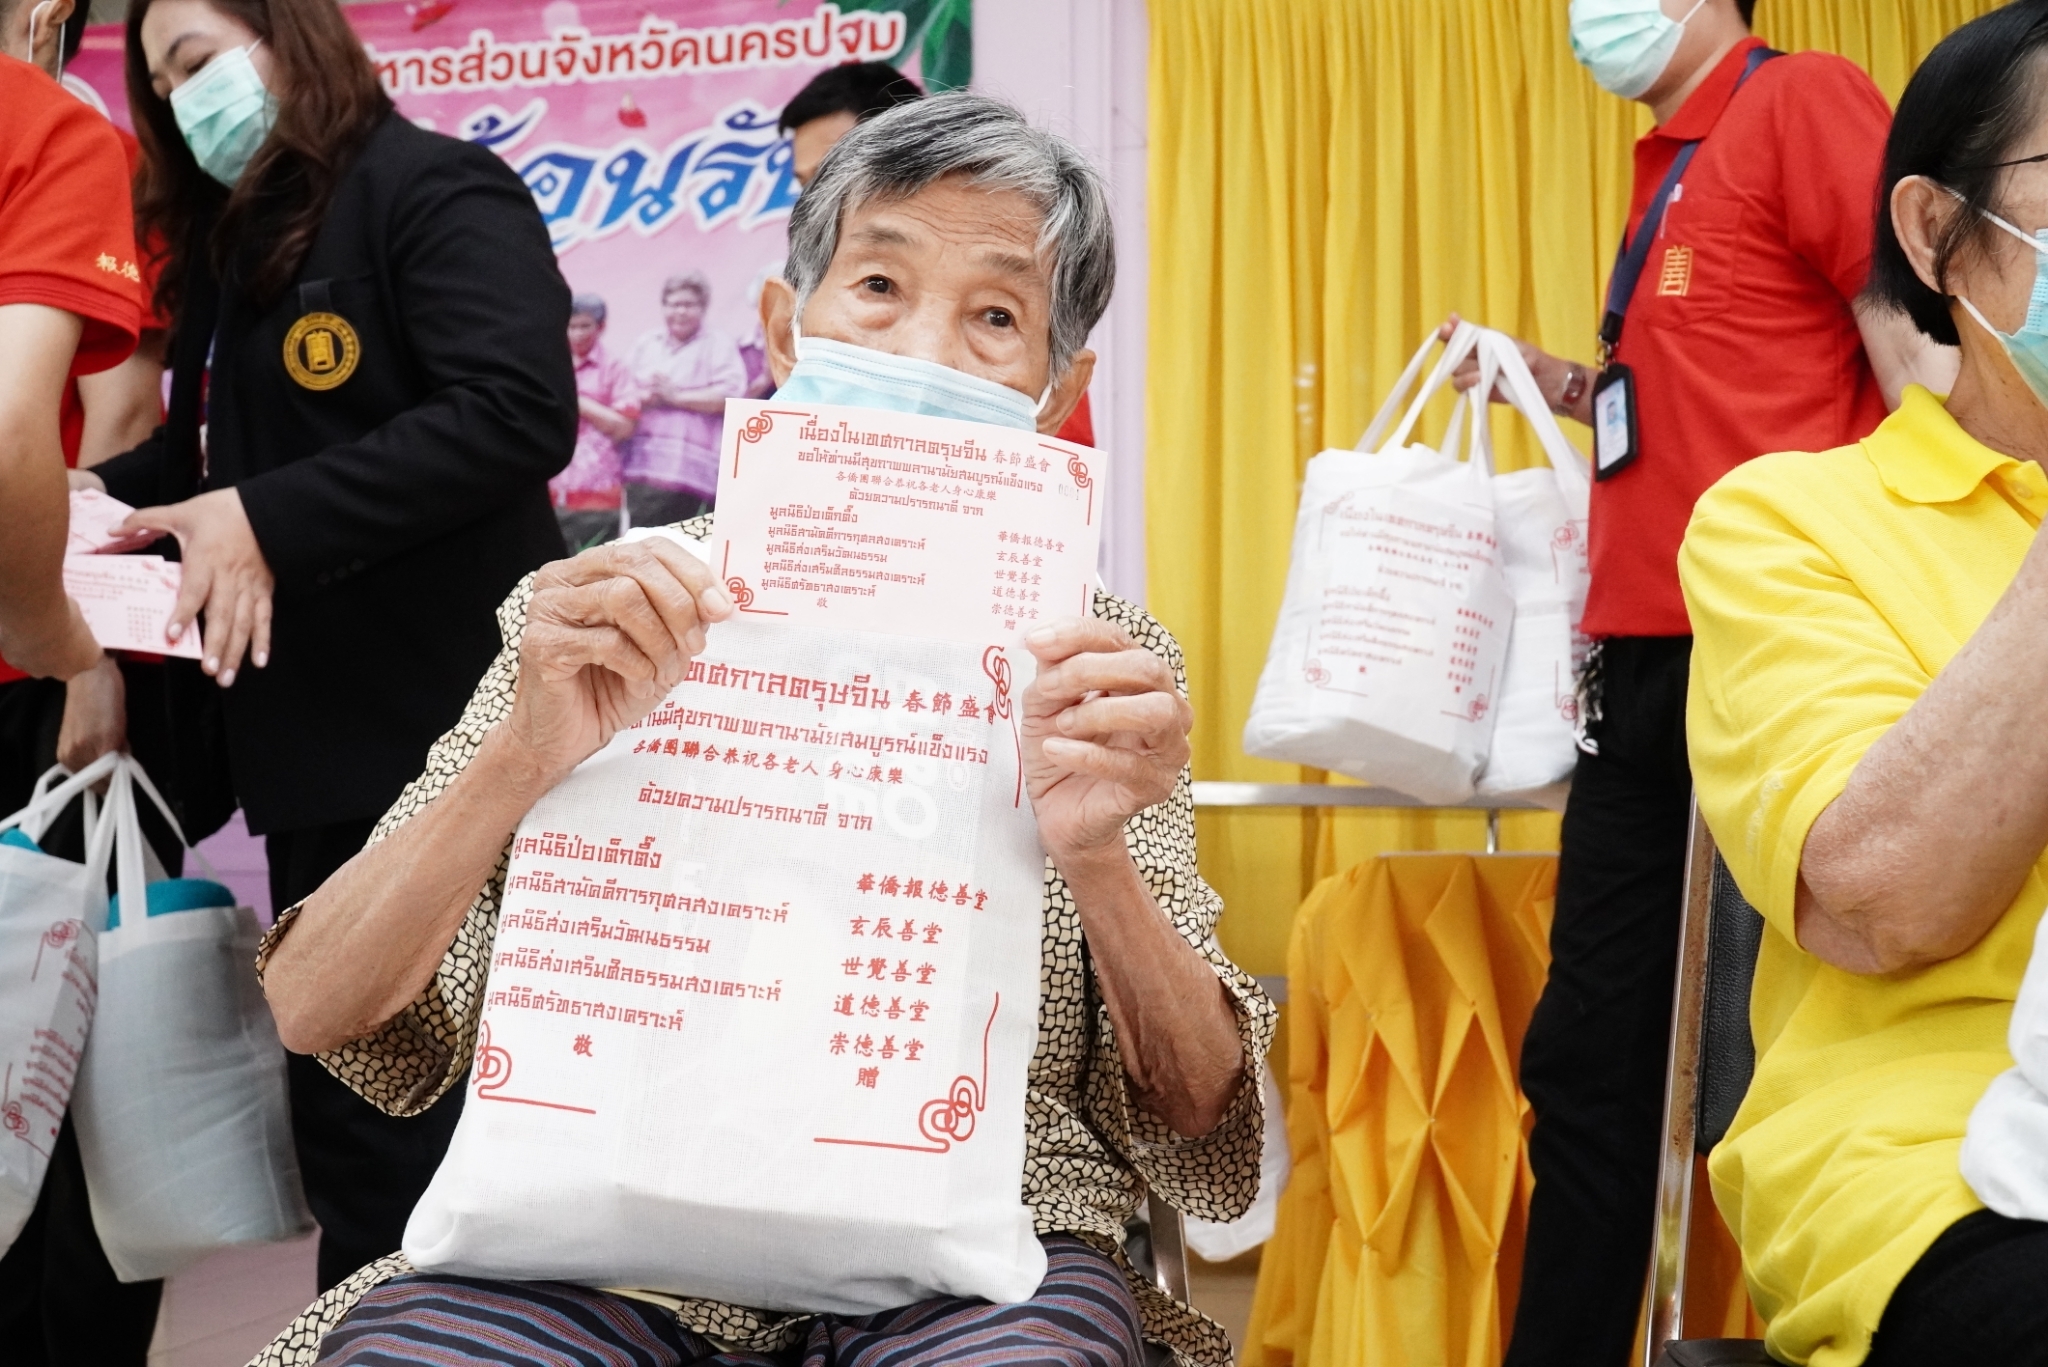 หารส่วนจังหวัดนครปฐม
้อนรับ
報德
เนื่องในเทศกาลตรุษจีน 春節盛會
ขอให้ท่านมีสุขภาพพลานามัยสมบูรณ์แข็งแรง
各僑團聯合恭祝各老人身心康樂
ด้วยความปรารถนาดี จาก
มูลนิธิป่อเต็กตึ๊ง 華僑報德善堂
มูลนิธิสามัคคีการกุศลสงเคราะห์ 玄辰善堂
มูลนิธิส่งเสริมวัฒนธรรม 世覺善堂
มูลนิธิส่งเสริมศีลธรรมสงเคราะห์ 道德善堂
มูลนิธิศรัทธาสงเคราะห์ 崇德善堂
敬 贈
เทศกาลตรุษจีน 春節盛會
ท่านมีสุขภาพพลานามัยสมบูรณ์แข็งแรง
各僑團聯合恭祝各老人身心康樂
ด้วยความปรารถนาดี จาก
มูลนิธิป่อเต็กตึ๊ง 華僑報德善堂
มูลนิธิสามัคคีการกุศลสงเคราะห์ 玄辰善堂
มูลนิธิส่งเสริมวัฒนธรรม 世覺善堂
มูลนิธิส่งเสริมศีลธรรมสงเคราะห์ 道德善堂
มูลนิธิศรัทธาสงเคราะห์ 崇德善堂
敬 贈
เนื่องในเทศกาลตรุษจีน 春節盛會